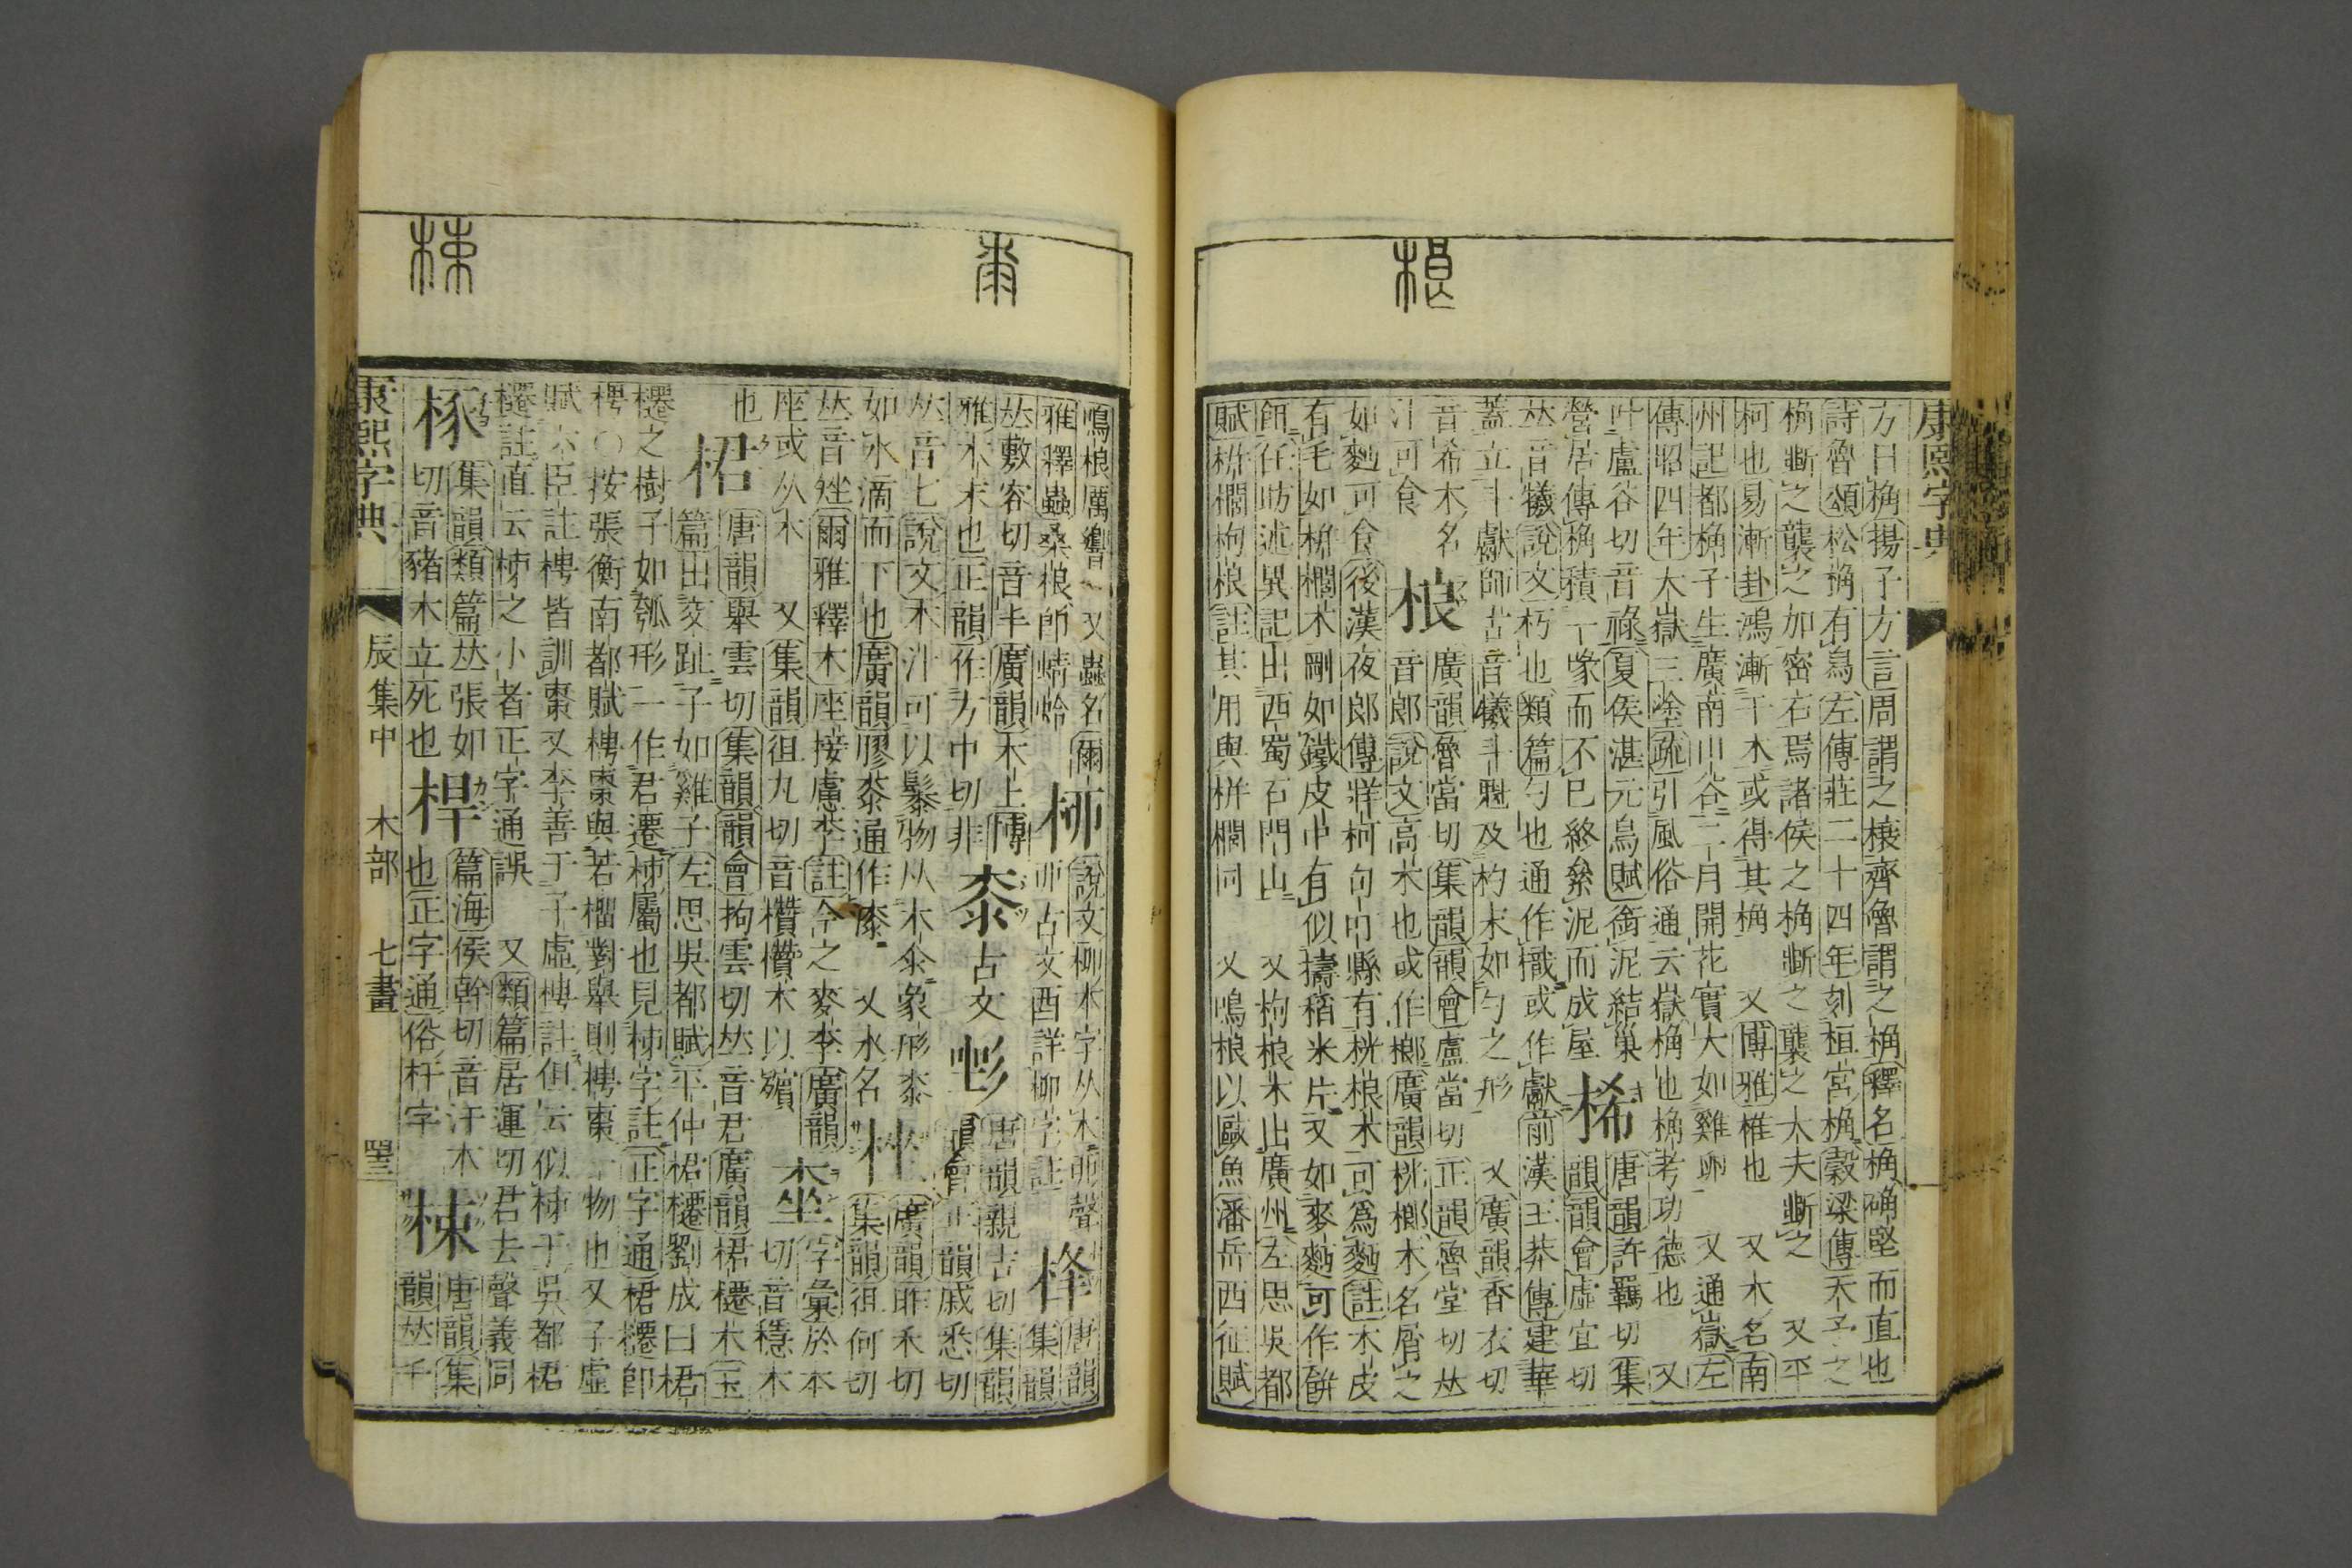 康熙字典
方曰桷揚子方言周謂之榱齊魯謂之桷釋名桷确堅而直也
詩魯頌松桷有舄左傳莊二十四年刻桓宮桷穀梁傳天子之
桷斲之礱之加密石焉諸侯之桷斲之礱之大夫斲之 又平
柯也易漸卦鴻漸于木或得其桷 又博雅槌也 又木名南
州記都桷子生廣南山谷二月開花實大如雞卵 又通嶽左
傳昭四年大嶽三塗疏引風俗通云嶽桷也桷考功德也 又
叶盧谷切音祿夏侯湛元鳥賦銜泥結巢 桸 唐韻許羈切集
營居傳桷積一喙而不已終絫泥而成屋 韻韻會虛宜切
𠀤音犧說文朽也類篇勺也通作㰕或作獻前漢王莽傳建華
蓋立斗獻師古音犧斗魁及杓末如勺之形 又廣韻香衣切
音希木名 桹 廣韻魯當切集韻韻會盧當切正韻魯堂切𠀤
汁可食 音郎說文高木也或作榔廣韻桄榔木名屑之
如麪可食後漢夜郎傳牂柯句町縣有桄桹木可爲麪註木皮
有毛如栟櫚木剛如鐵皮中有似擣稻米片又如麥麪可作餅
餌任昉述異記出西蜀石門山 又枸桹木出廣州左思吳都
賦栟櫚枸桹註其用與栟櫚同 又鳴桹以歐魚潘岳西征賦
鳴桹厲響 又蟲名爾 桺 說文柳本字从木丣聲 桻 唐韻
雅釋蟲桑桹卽蜻蛉 丣古文酉詳柳字註 集韻
𠀤敷容切音丰廣韻木上博 桼 古文 唐韻親吉切集韻
雅木末也正韻作方中切非 韻會正韻戚悉切
𠀤音七說文木汁可以髤物从木象形桼 廣韻昨禾切
如水滴而下也廣韻膠桼通作漆 又水名 集韻徂何切
𠀤音矬爾雅釋木座接慮李註今之麥李廣韻 字彙於本
座或从木 又集韻徂丸切音欑儹木以殯 切音穩木
也 桾 唐韻舉雲切集韻韻會拘雲切𠀤音君廣韻桾櫏木玉
篇出交趾子如雞子左思吳都賦平仲桾櫏劉成曰桾
櫏之樹子如瓠形一作君遷梬屬也見梬字註正字通桾櫏卽
梬○按張衡南都賦梬棗與若榴對舉則梬棗一物也又子虛
賦六臣註梬皆訓棗又李善于子虛梬註但云似梬于吳都桾
櫏註直云梬之小者正字通誤 又類篇居運切君去聲義同
集韻類篇𠀤張如 桿 篇海侯幹切音汗木 梀 唐韻集
切音豬木立死也 也正字通俗杆字 韻𠀤千
康熙字典 辰集中 木部 七畫